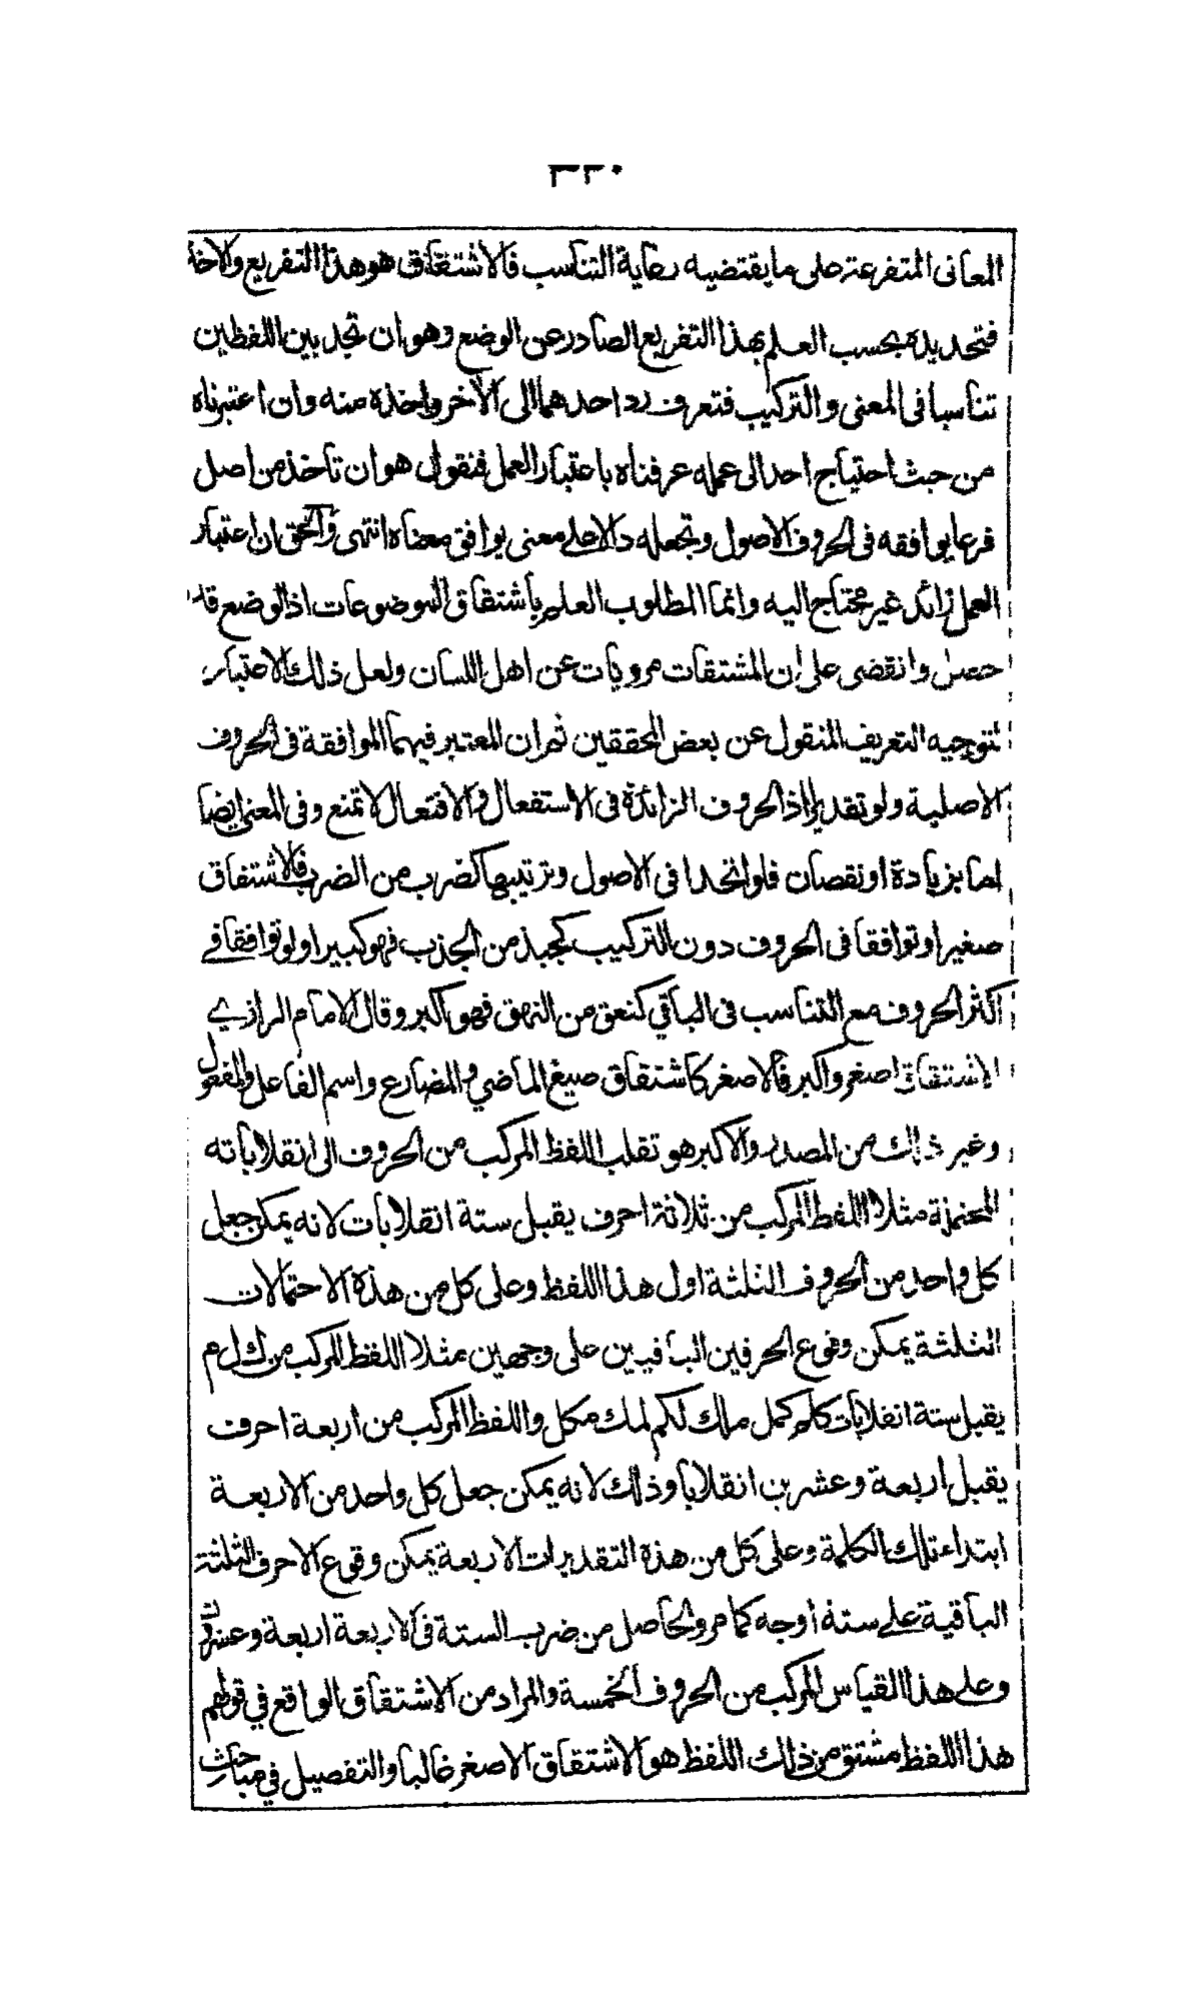 ٣٣٠
المعانى المتفرعة على ما يقتضيه رعاية التناسب فالاشتقاق هو هذا التفريع والاخذ
فتحديده بحسب العلم بهذا التفريع الصادر عن الوضع وهو ان تجد بين اللفظين
تناسبا فى المعنى والتركيب فتعرف رد احدهما الى الآخر واخذه منه وان اعتبرناه
من حيث احتياج احد الى عمله عرفناه باعتبار العمل فنقول هو ان تأخذ من اصل
فرعا يوافقه فى الحروف الاصول وتجعله دالا على معنى يوافق معناه انتهى والحق ان اعتبار
العمل زائد غير محتاج اليه وانما المطلوب العلم باشتقاق الموضوعات اذ الوضع قد
حصل وانقضى على ان المشتقات مرويات عن اهل اللسان ولعل ذلك الاعتبار
لتوجيه التعريف المنقول عن بعض المحققين ثم ان المعتبر فيهما الموافقة فى الحروف
الاصلية ولو تقديرا اذ الحروف الزائدة فى الاستفعال والافتعال لا تمنع وفى المعنى ايضا
اما بزيادة او نقصان فلو اتحدا فى الاصول وترتيبها كضرب من الضرب فالاشتقاق
صغير او توافقا فى الحروف دون التركيب كجبذ من الجذب فهو كبير او لو توافقا فے
اكثر الحروف مع التناسب فى الباقي كنعق من النهق فهو اكبر وقال الامام الرازے
الاشتقاق اصغر واكبر فالاصغر كاشتقاق صيغ الماضي والمضارع واسم الفاعل والمفعول
وغير ذلك من المصدر والاكبر هو تقلب اللفظ المركب من الحروف الى انقلاباته
المحتملة مثلا اللفظ المركب من ثلاثة احرف يقبل ستة انقلابات لانه يمكن جعل
كل واحد من الحروف الثلثة اول هذا اللفظ وعلى كل من هذه الاحتمالات
الثلثة يمكن وقوع الحرفين الباقيين على وجهين مثلا اللفظ المركب من ك ل م
يقبل ستة انقلابات كلم كمل ملك لكم لمك مكل واللفظ المركب من اربعة احرف
يقبل اربعة وعشرين انقلابا وذلك لانه يمكن جعل كل واحد من الاربعة
ابتداء تلك الكلمة وعلى كل من هذه التقديرات الاربعة يمكن وقوع الاحرف الثلثة
الباقية على ستة اوجه كما مر والحاصل من ضرب الستة فى الاربعة اربعة وعشرون
وعلى هذا القياس المركب من الحروف الخمسة والمراد من الاشتقاق الواقع في قولهم
هذا اللفظ مشتق من ذلك اللفظ هو الاشتقاق الاصغر غالبا والتفصيل في مباحث